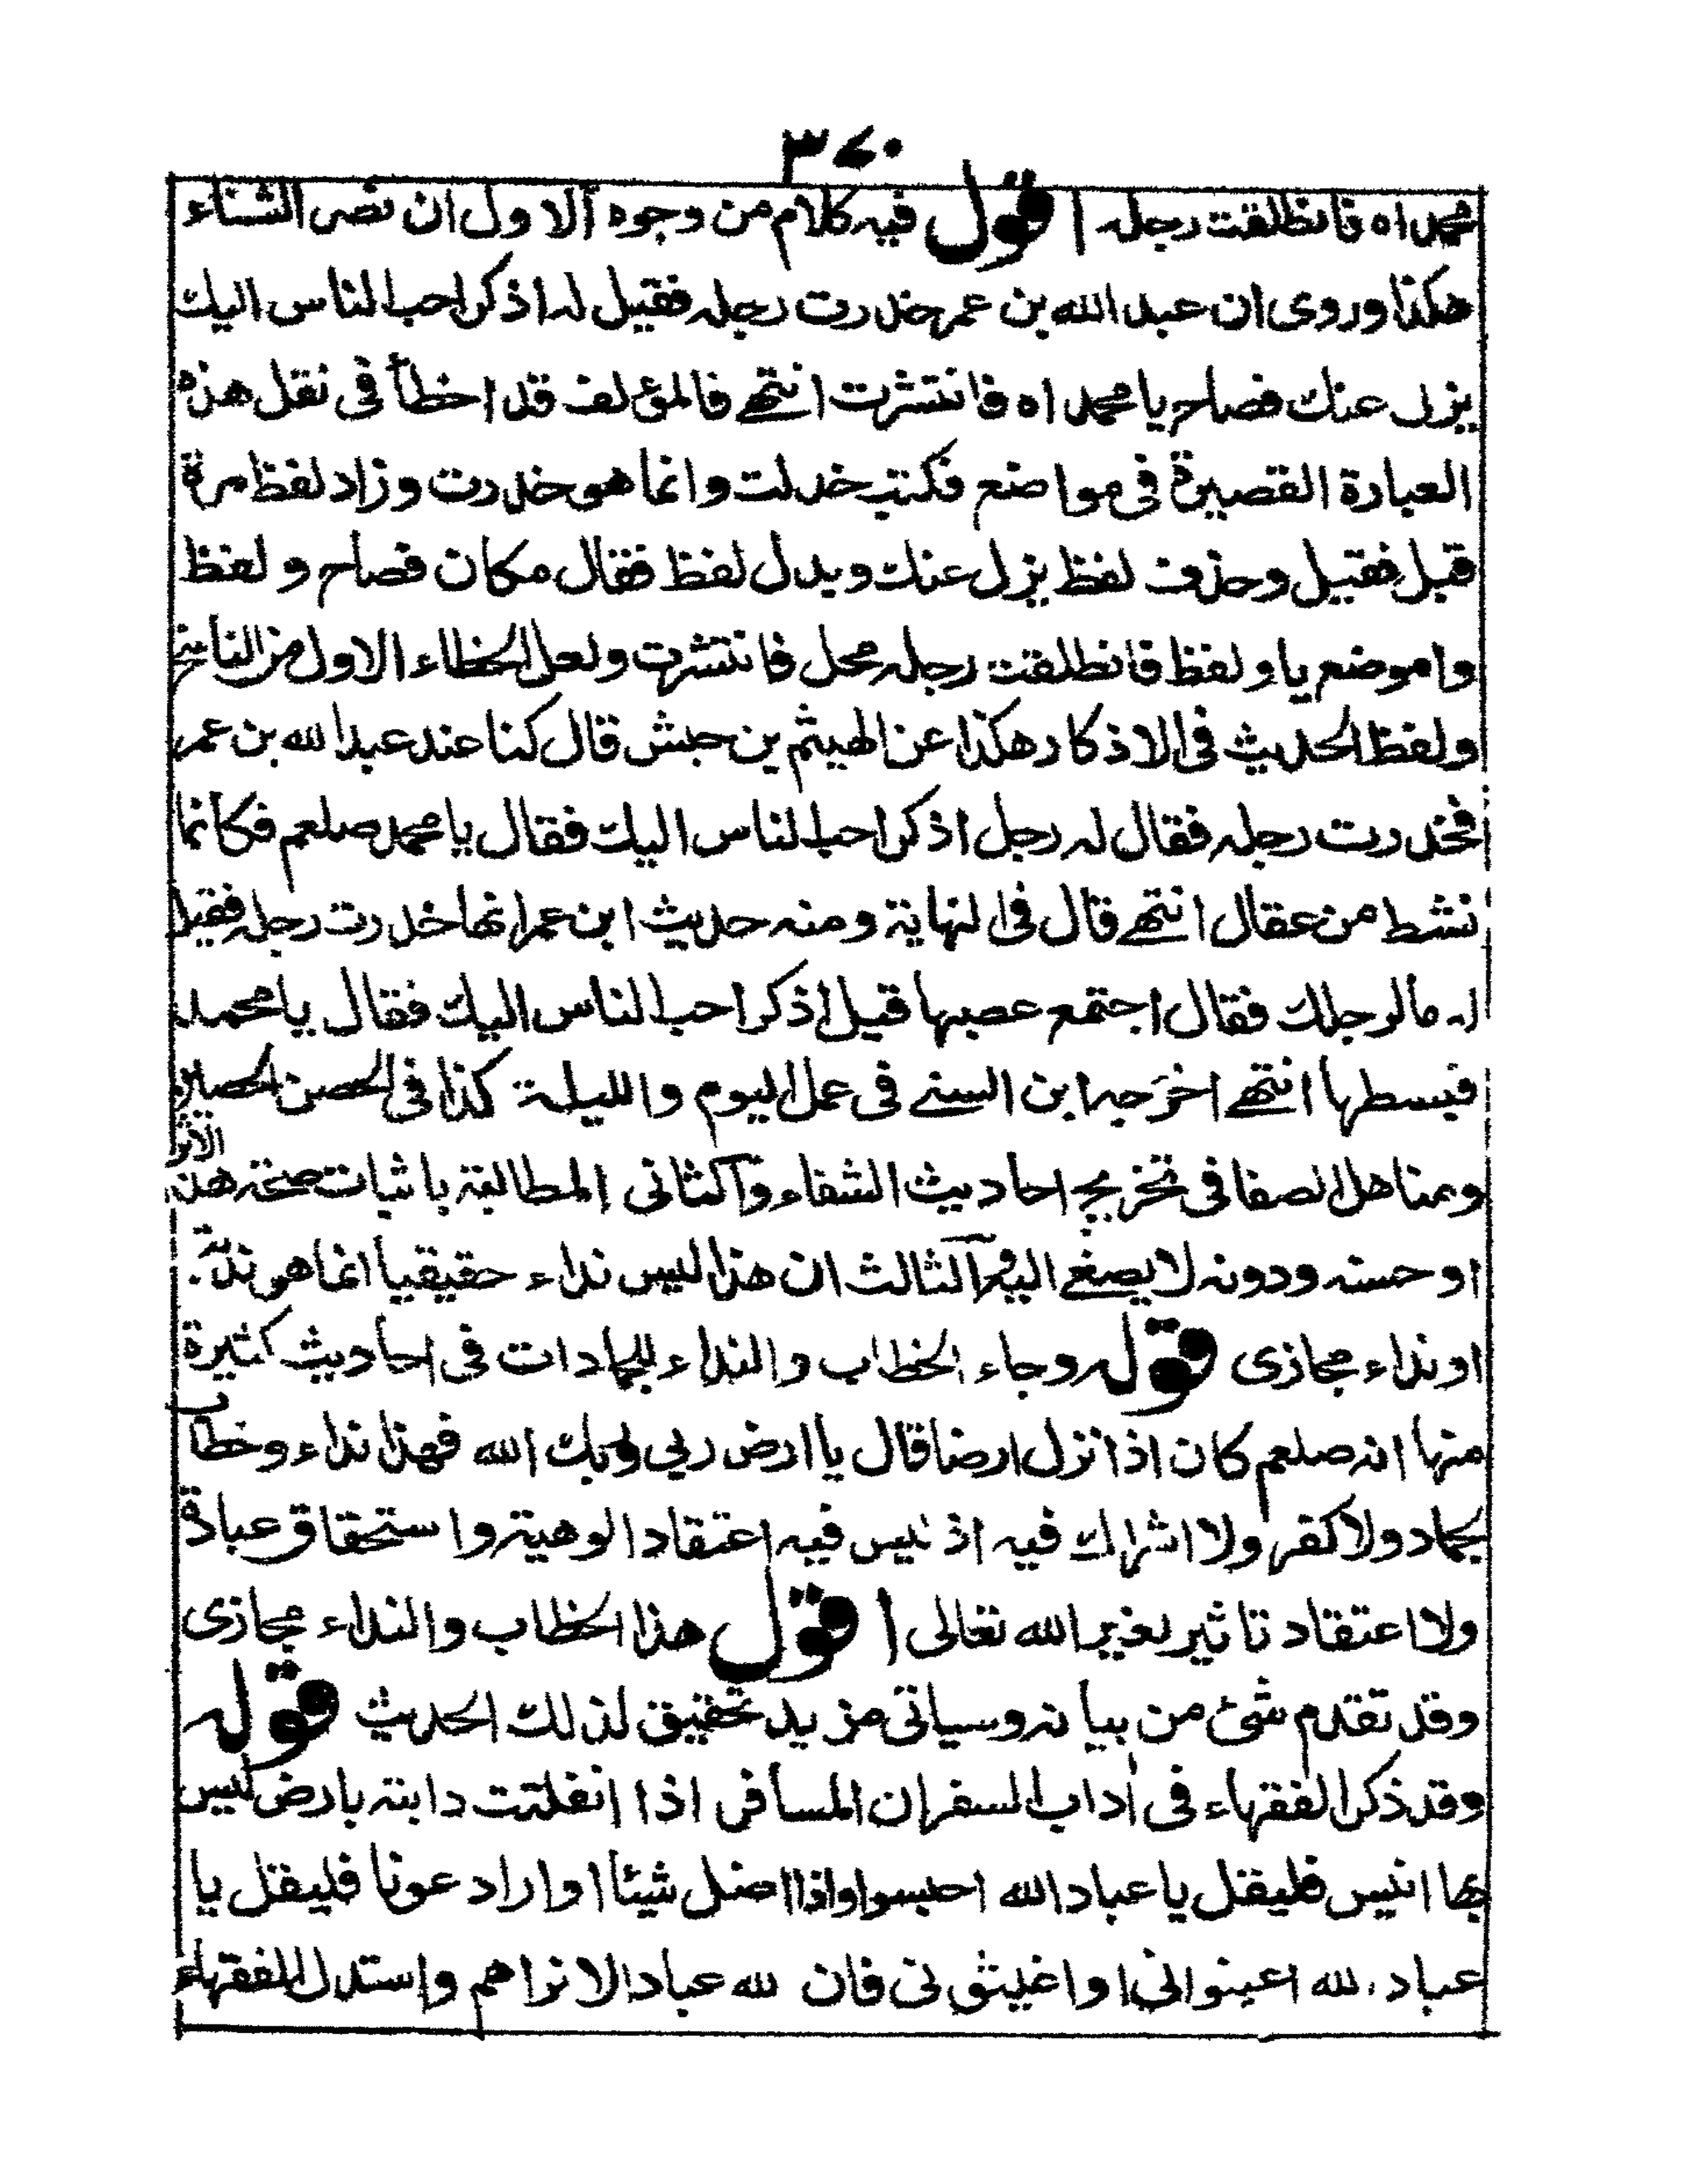 ٣٧٠
محمداه فانطلقت رجله اقول فيه كلام من وجوه الاول ان نص الشناء
هكذا وروى ان عبد الله بن عمر خدرت رجله فقيل له اذكر احب الناس اليك
يزل عنك فصاح يا محمداه فانتشرت انتهى فالمؤلف قد اخطأ فى نقل هذه
العبارة القصيرة فى مواضع فكتب خدلت وانما هو خدرت وزاد لفظ مرة
قبل فقيل وحذف لفظ يزل عنك وبدل لفظ فقال مكان فصاح ولفظ
وا موضع يا ولفظ فانطلقت رجله محل فانتشرت ولعل الخطاء الاول من الناسخ
ولفظ الحديث فى الاذكار هكذا عن الهيثم بن حبش قال كنا عند عبد الله بن عمر
فخدرت رجله فقال له رجل اذكر احب الناس اليك فقال يا محمد صلعم فكانما
نشط من عقال انتهى قال فى النهاية ومنه حديث ابن عمر انها خدرت رجله فقيل
له ما لرجلك فقال اجتمع عصبها قيل اذكر احب الناس اليك فقال يا محمد
فبسطها انتهى اخرجه ابن السنى فى عمل اليوم والليلة كذا فى الحصن الحصين
ومناهل الصفا فى تخريج احاديث الشفاء والثانى المطالبة باثبات صحة هذه الاثر
او حسنه ودونه لا يصغى اليه والثالث ان هذا ليس نداء حقيقيا انما هو ندبة
او نداء مجازى قوله وجاء الخطاب والنداء للجمادات فى احاديث كثيرة
منها انه صلعم كان اذا نزل ارضا قال يا ارض ربى وربك الله فهذا نداء وخطاب
بجماد ولا كفر ولا اشراك فيه اذ ليس فيه اعتقاد الوهية واستحقاق عبادة
ولا اعتقاد تاثير لغير الله تعالى اقول هذا الخطاب والنداء مجازى
وقد تقدم شئ من بيانه وسياتى مزيد تحقيق لذلك الحديث قوله
وقد ذكر الفقهاء فى اداب السفر ان المسافر اذا انفلتت دابته بارض ليس
بها انيس فليقل يا عباد الله احبسوا واذا اضل شيئا او اراد عونا فليقل يا
عباد الله اعينوانى او اغيثونى فان لله عبادا لا نراهم واستدل الفقهاء